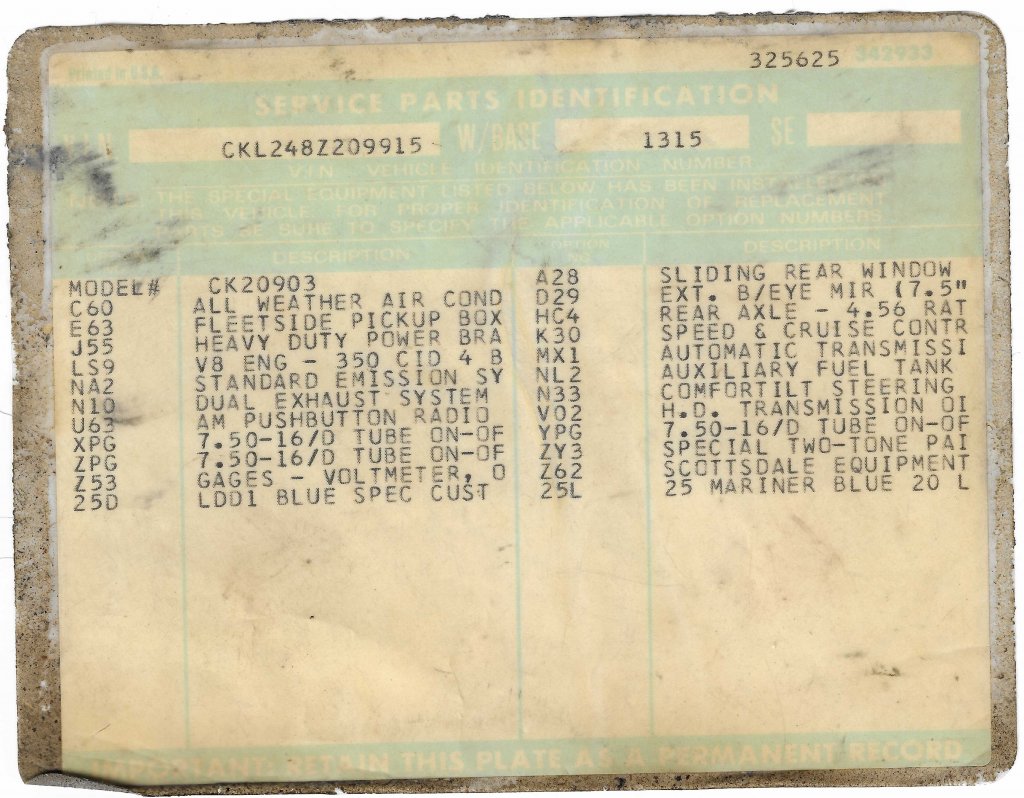 Printed in U.S.A. 325625 342933
SERVICE PARTS IDENTIFICATION
V.I.N. CKL248Z209915 W/BASE 1315 SE
V.I.N. VEHICLE IDENTIFICATION NUMBER
THE SPECIAL EQUIPMENT LISTED BELOW HAS BEEN INSTALLED
THIS VEHICLE. FOR PROPER IDENTIFICATION OF REPLACEMENT
PARTS BE SURE TO SPECIFY THE APPLICABLE OPTION NUMBERS
DESCRIPTION OPTION NO. DESCRIPTION
MODEL# CK20903 A28 SLIDING REAR WINDOW
C60 ALL WEATHER AIR COND D29 EXT. B/EYE MIR (7.5"
E63 FLEETSIDE PICKUP BOX HC4 REAR AXLE - 4.56 RAT
J55 HEAVY DUTY POWER BRA K30 SPEED & CRUISE CONTR
LS9 V8 ENG - 350 CID 4 B MX1 AUTOMATIC TRANSMISSI
NA2 STANDARD EMISSION SY NL2 AUXILIARY FUEL TANK
N10 DUAL EXHAUST SYSTEM N33 COMFORTILT STEERING
U63 AM PUSHBUTTON RADIO V02 H.D. TRANSMISSION OI
XPG 7.50-16/D TUBE ON-OF YPG 7.50-16/D TUBE ON-OF
ZPG 7.50-16/D TUBE ON-OF ZY3 SPECIAL TWO-TONE PAI
Z53 GAGES - VOLTMETER, O Z62 SCOTTSDALE EQUIPMENT
25D LDD1 BLUE SPEC CUST 25L 25 MARINER BLUE 20 L
IMPORTANT: RETAIN THIS PLATE AS A PERMANENT RECORD